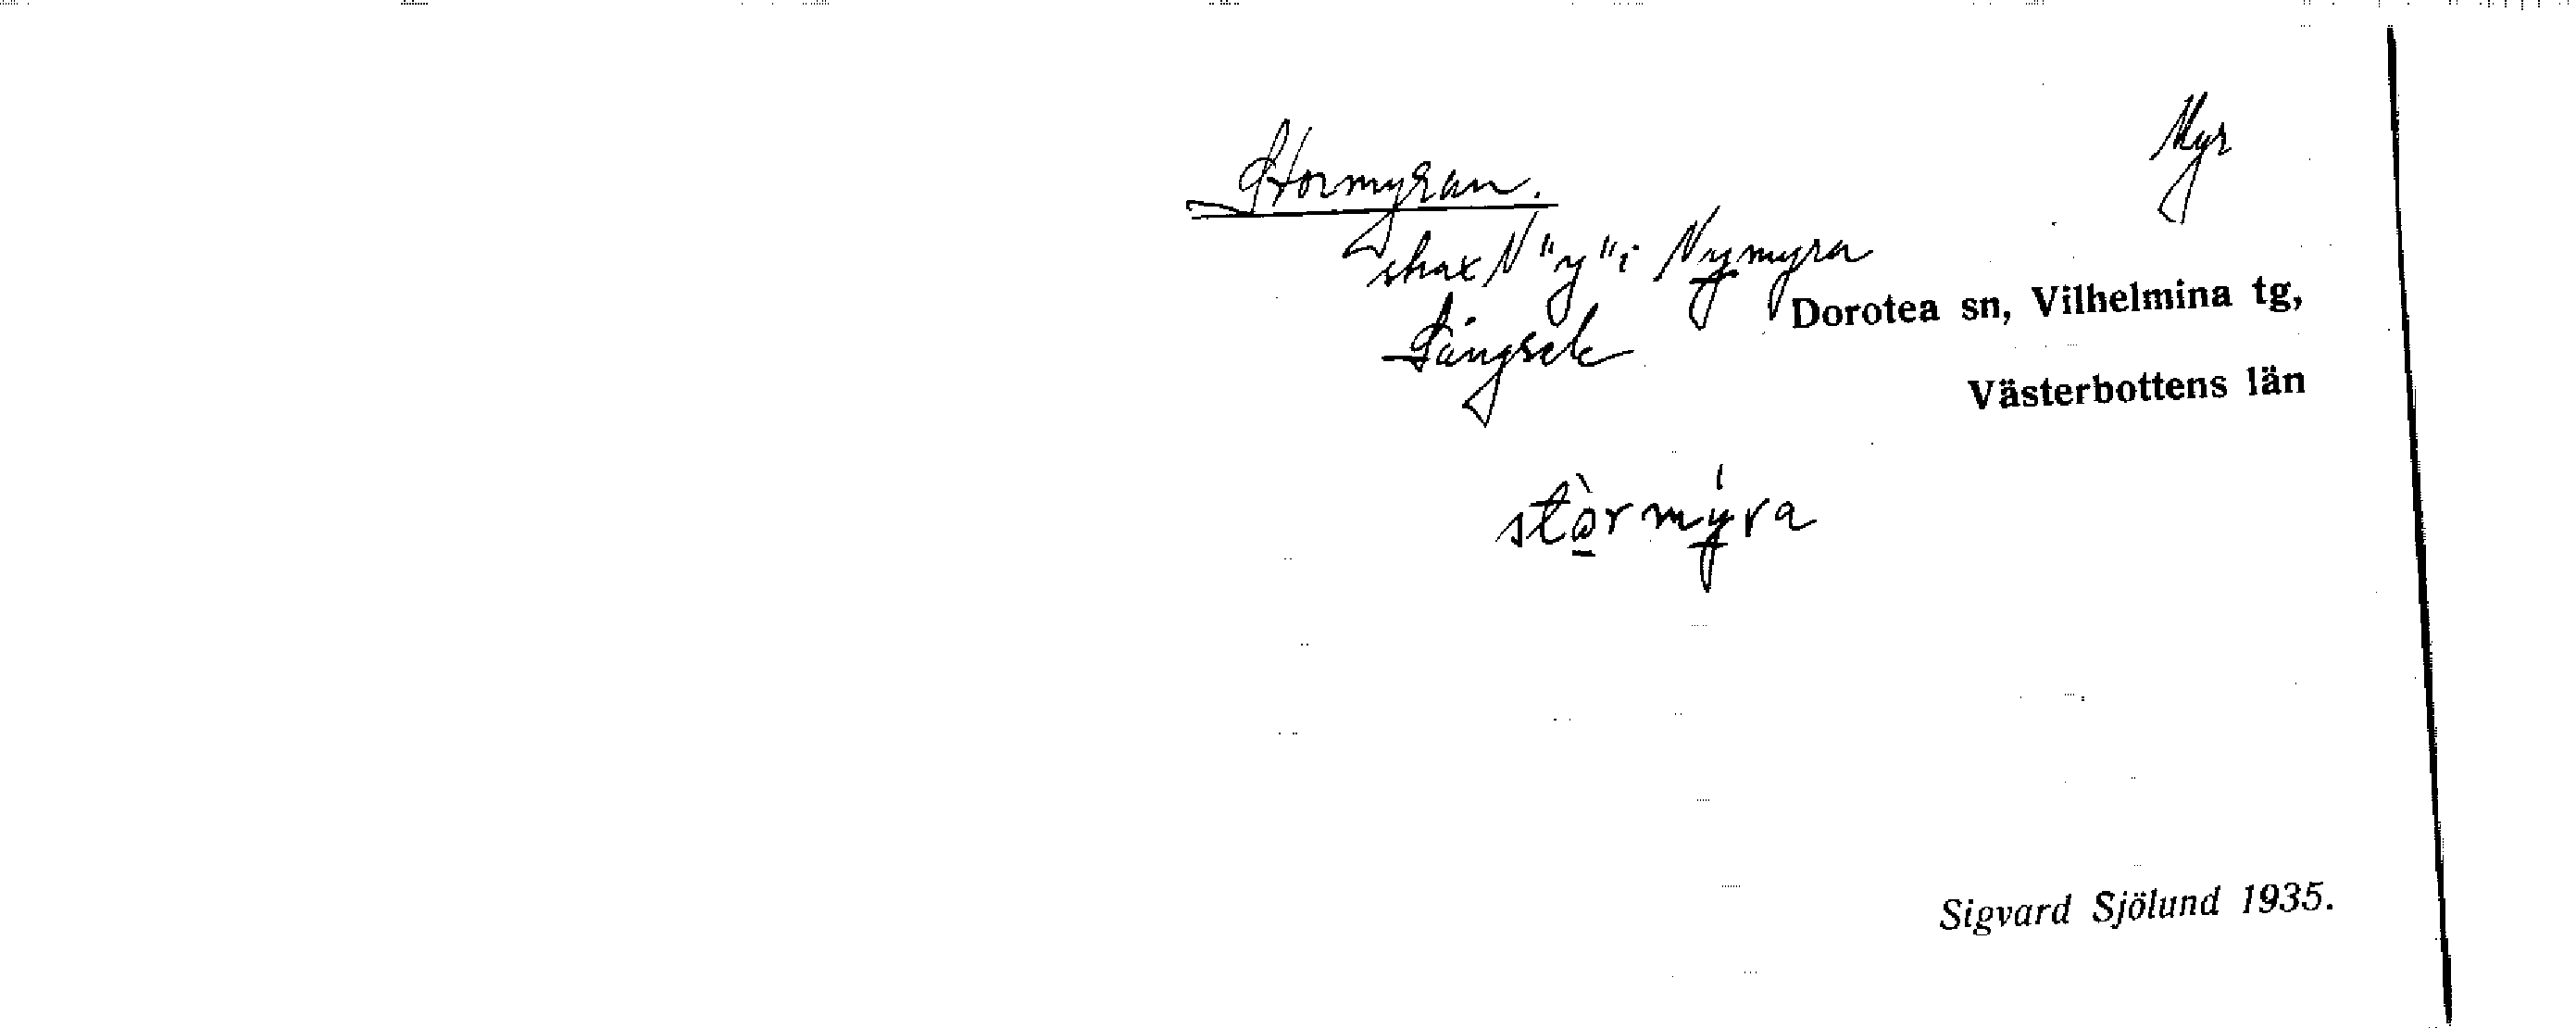 Stormyran.
Myr
strax N "y" i Nymyra
Dorotea sn, Vilhelmina tg,
Långsele
Västerbottens län
stòrmýra
Sigvard Sjölund 1935.